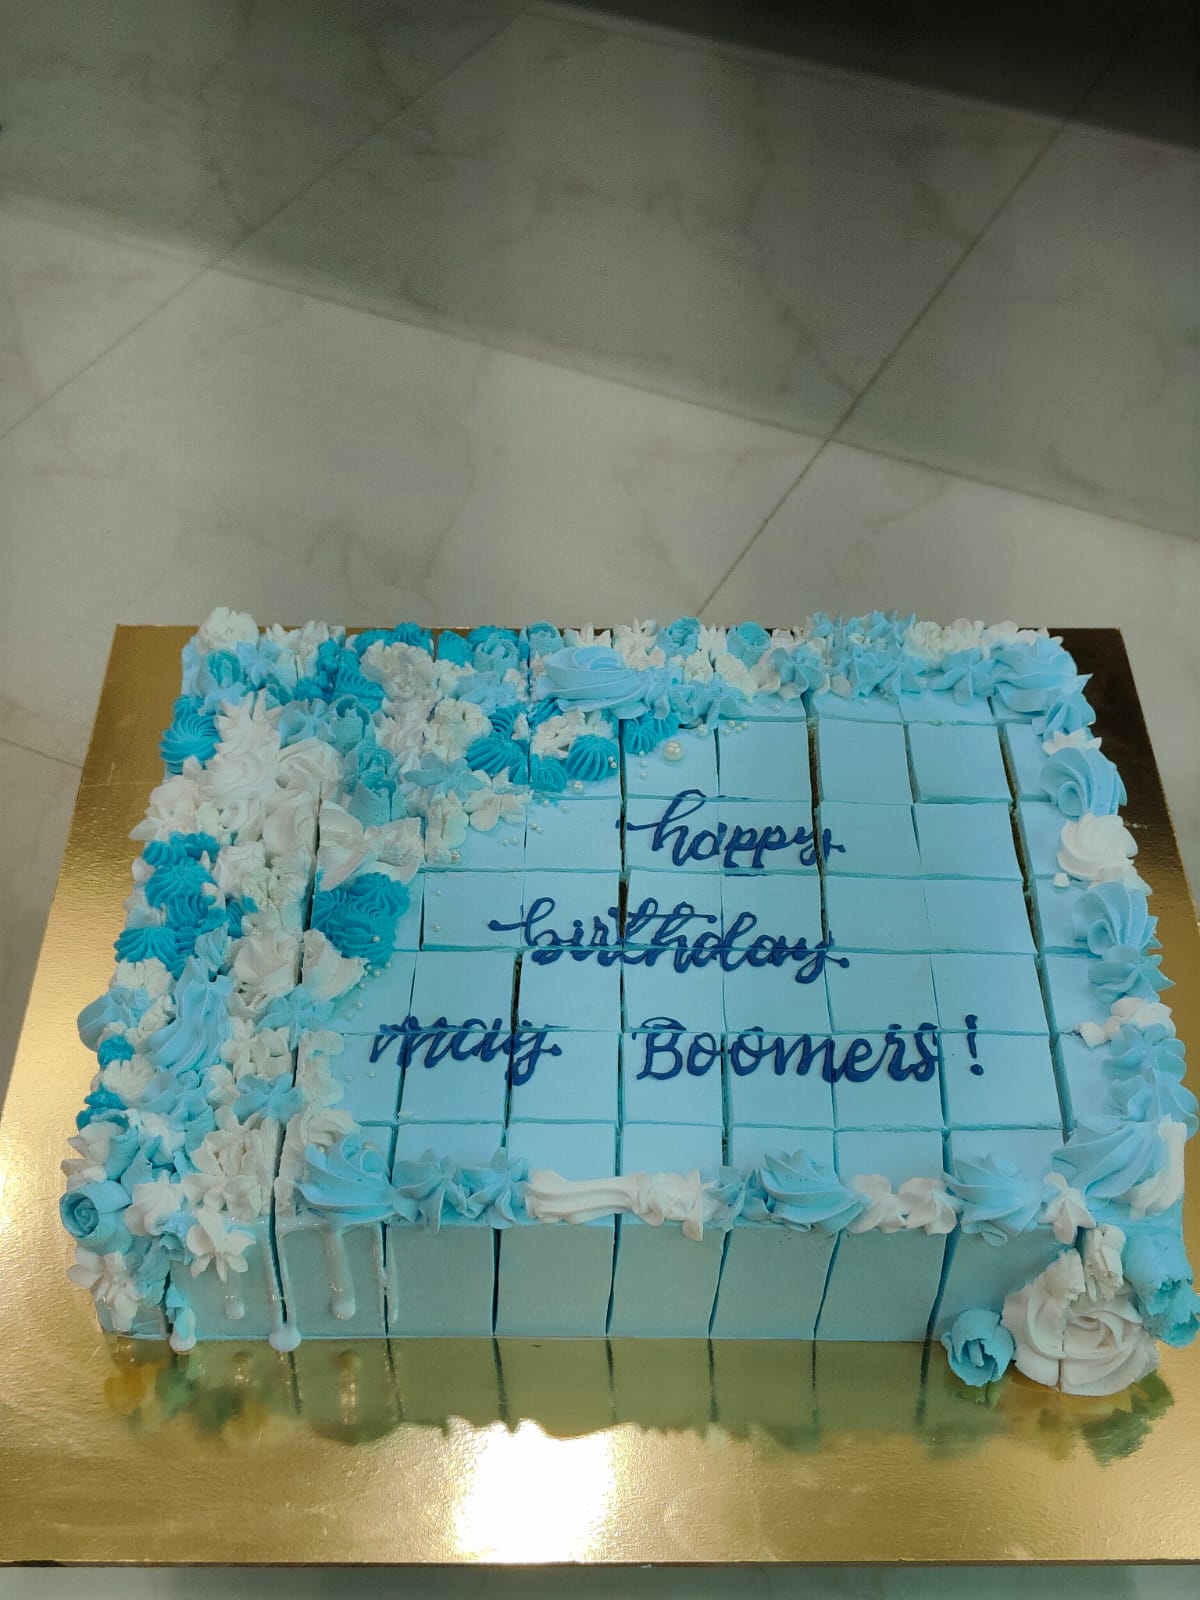 happy
birthday
may Boomers!